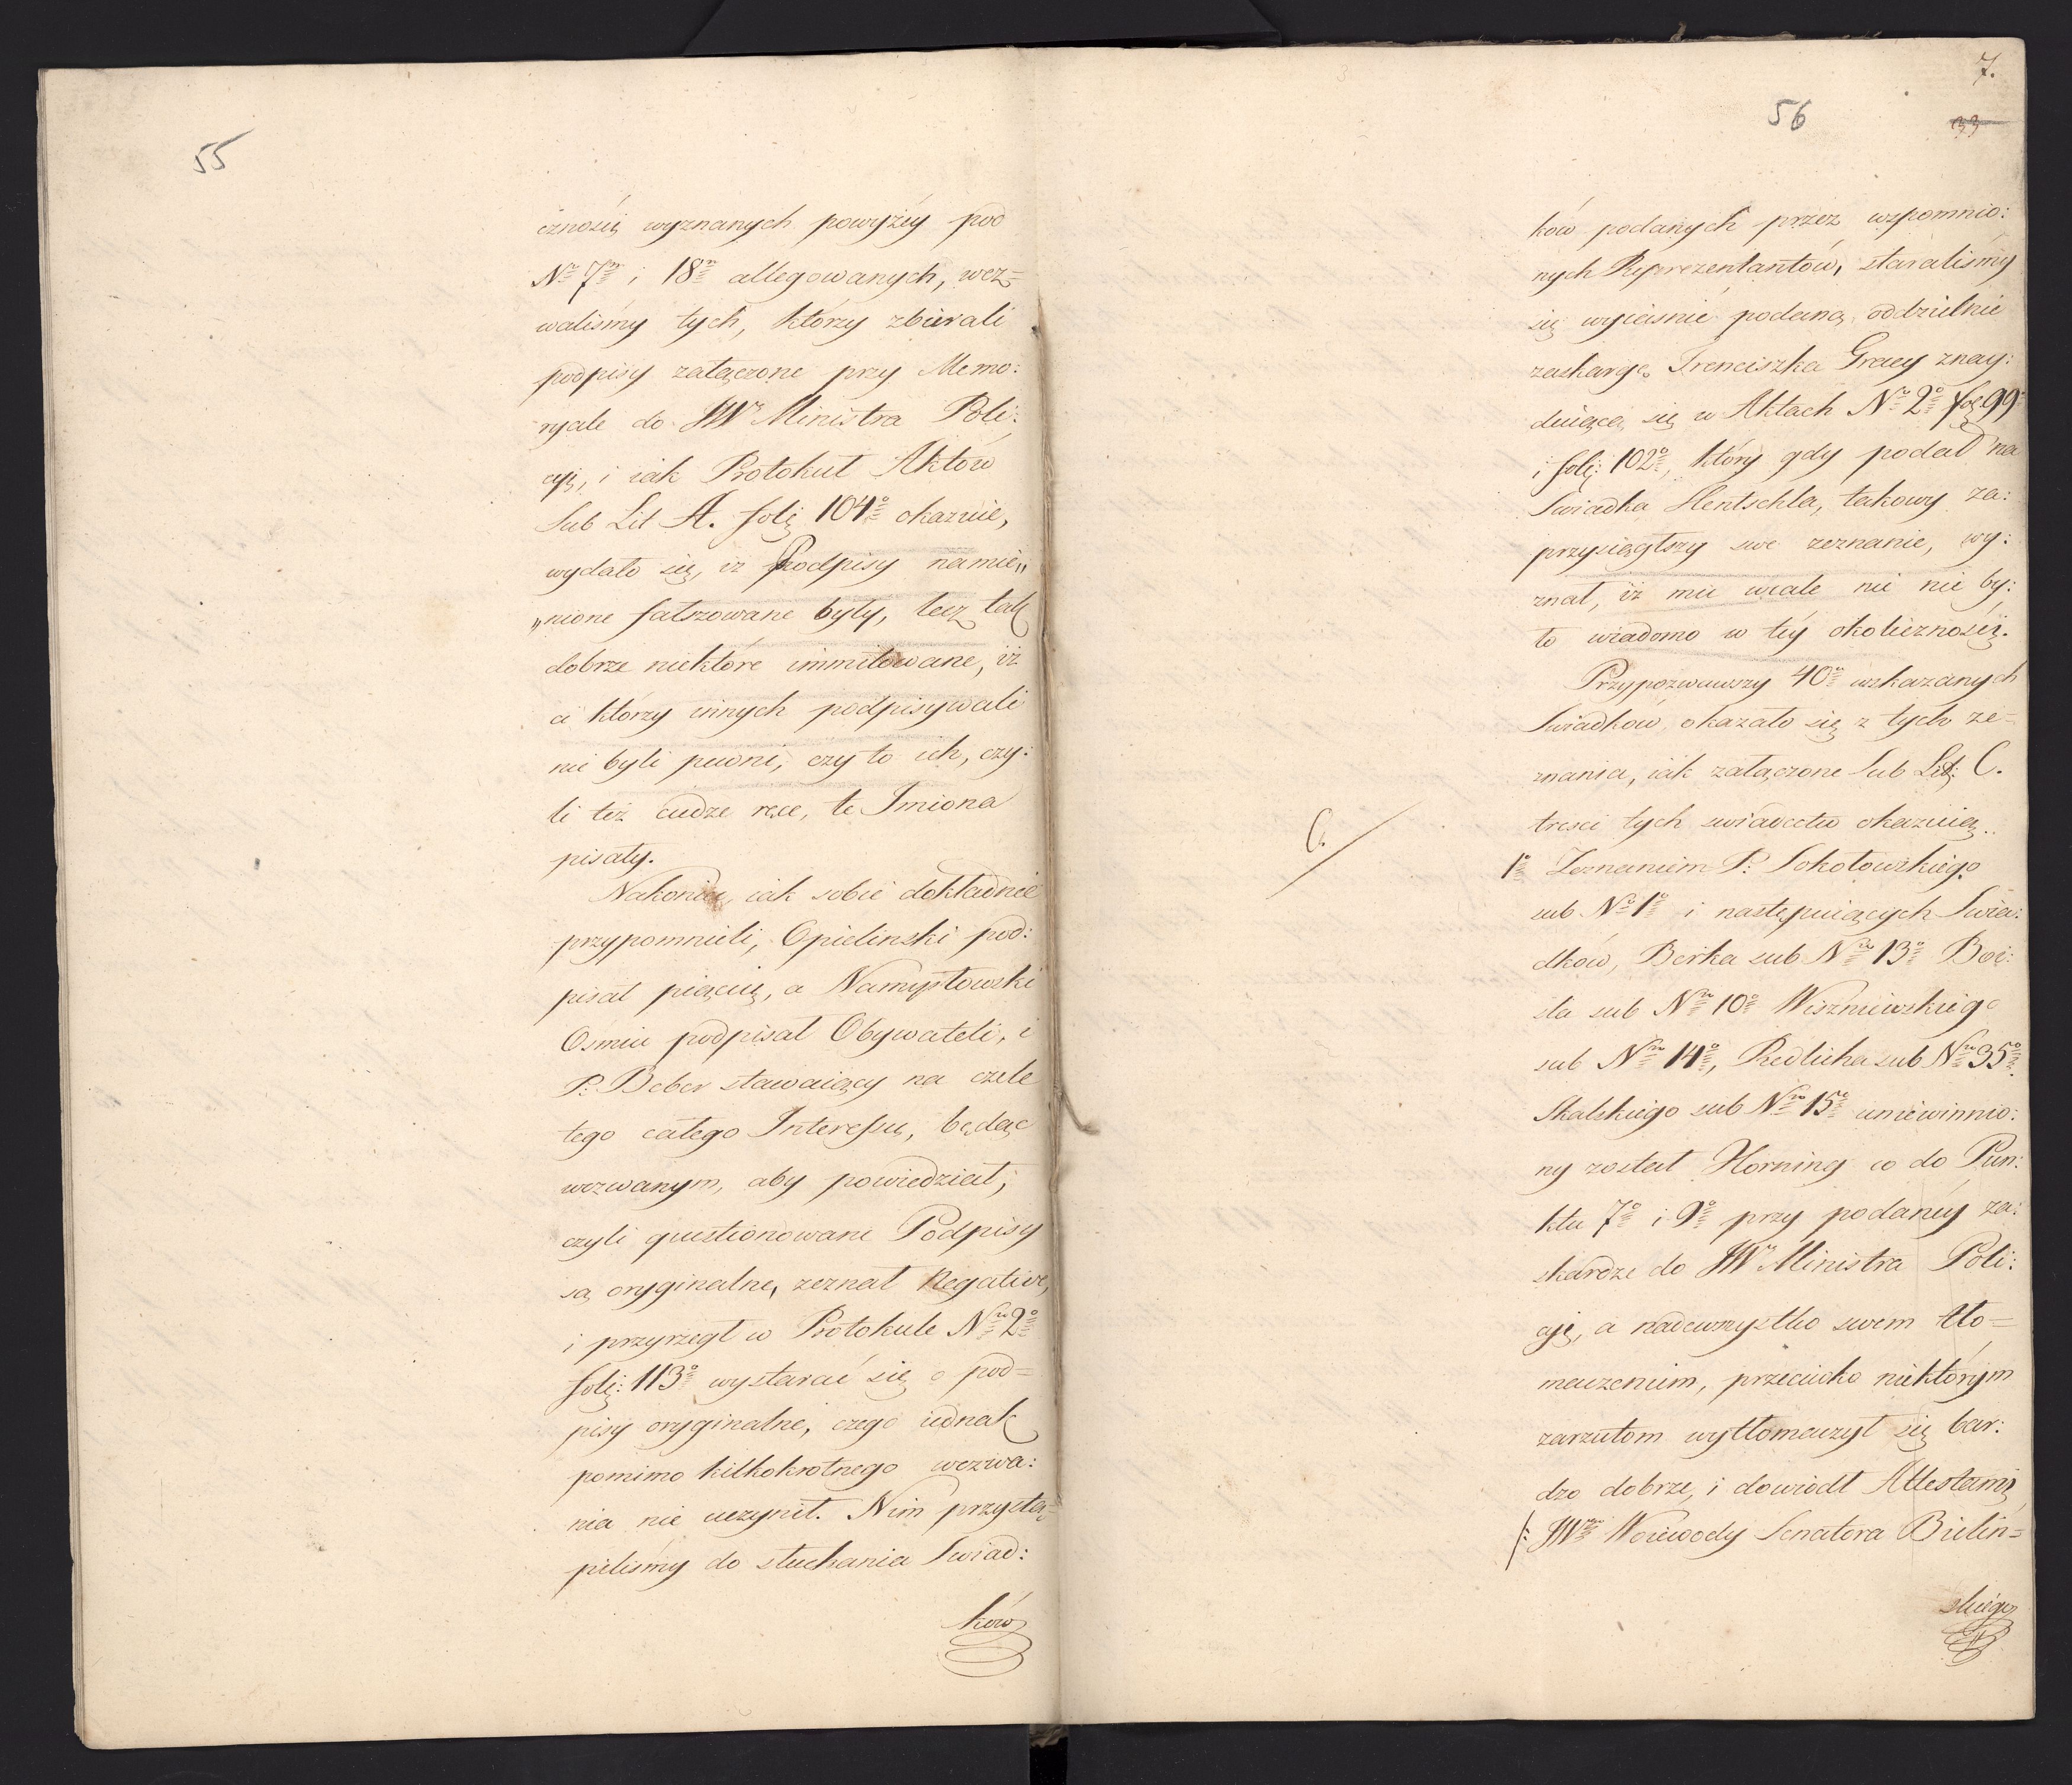 55
cznoścįą wyznanych powyżéy pod
Nº 7º i 18º allegowanych, wez=
waliśmy tych, którzy zbierali
podpisy załączone przy Memo:
ryale do JWº Ministra Poli:
cyi, i iak Protokuł Aktów
Sub Lit A. folį 104º okazuie,
wydało się, iż Podpisy namie„
„nione fałszowane były, lecz tak
dobrze niektóre immitowane, iż
ci którzy innych podpisywali
nie byli pewni, czy to ich, czy:
li też cudze ręce, te Imiona
pisały.
Nakoniec, iak sobie dokładnie
przypomnieli, Opielinski pod:
pisał pięciu, a Namysłowski
Ośmiu podpisał Obywateli, i
P. Beber stawaiący na czele
tego całego Interessu, będąc
wezwanym, aby powiedział,
czyli questionowane Podpisy
są oryginalne, zeznał Negative,
i przyrzegł w Protokule Nº 2º
folį: 113º wystarać się o pod=
pisy oryginalne, czego iednak
pomimo kilkokrotnego wezwa:
nia nie uczynił. Nim przystą=
piliśmy do słuchania Swiad:
ków
7.
56
33
ków podanych przez wspomnio:
nych Reprezentantów, staraliśmy
się wyiaśnić podaną oddzielnie
zaskargę Franciszka Gracy znay:
duiącą się w Aktach Nº 2º folį 99º
i folį: 102º, który gdy podał na
Swiadka Hentschla, takowy za:
przysiągłszy swe zeznanie, wy:
znał, iż mu wcale nic nie by:
ło wiadomo w téy okolicznościį.
Przypozwawszy 40º wskazanych
Swiadków, okazało się z tych ze=
znania, iak załączone Sub Lit: C.
C.
tresci tych swiadectw okazuią..
1º Zeznaniem P. Sokołowskiego
sub Nº 1º i następuiących Swia:
dków, Berka sub Nº 13º Boi:
sta sub Nº 10º Wiszniewskiego
sub Nº 14º, Redlicha sub Nº 35º
Skalskiego sub Nº 15º uniewinnio:
ny został Horning co do Pun:
ktu 7º i 9º przy podanéy za:
skardze do JWº Ministra Poli:
cyi, a nadewszystko swem tło=
maczeniem, przeciwko niektórym
zarzutom wytłomaczył się bar:
dzo dobrze, i dowiódł Attestami
/: JWº Woiewody Senatora Bielin=
skiego